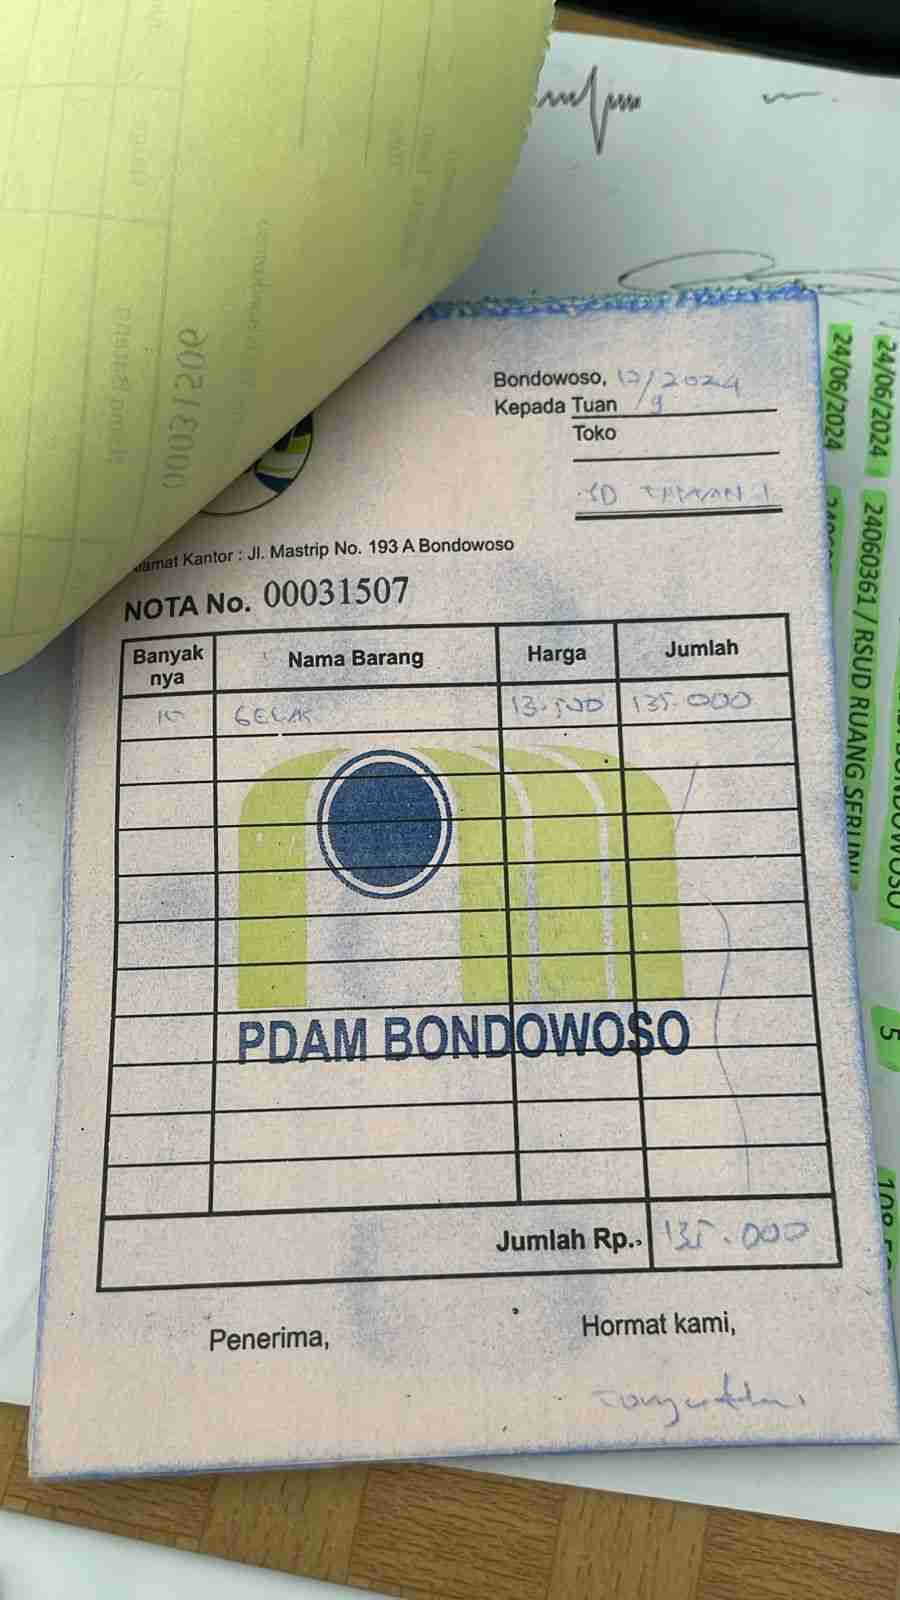 00031506
Bondowoso, 12/9 2024
Kepada Tuan
Toko
SD TAMAN 1
lamat Kantor : Jl. Mastrip No. 193 A Bondowoso
NOTA No. 00031507
Banyak nya Nama Barang Harga Jumlah
10 GELAS 13.500 135.000
PDAM BONDOWOSO
Jumlah Rp. 135.000
Penerima, Hormat kami,
24/06/2024
24/06/2024 24060361 / RSUD RUANG SERUNI
BONDOWOSO
5